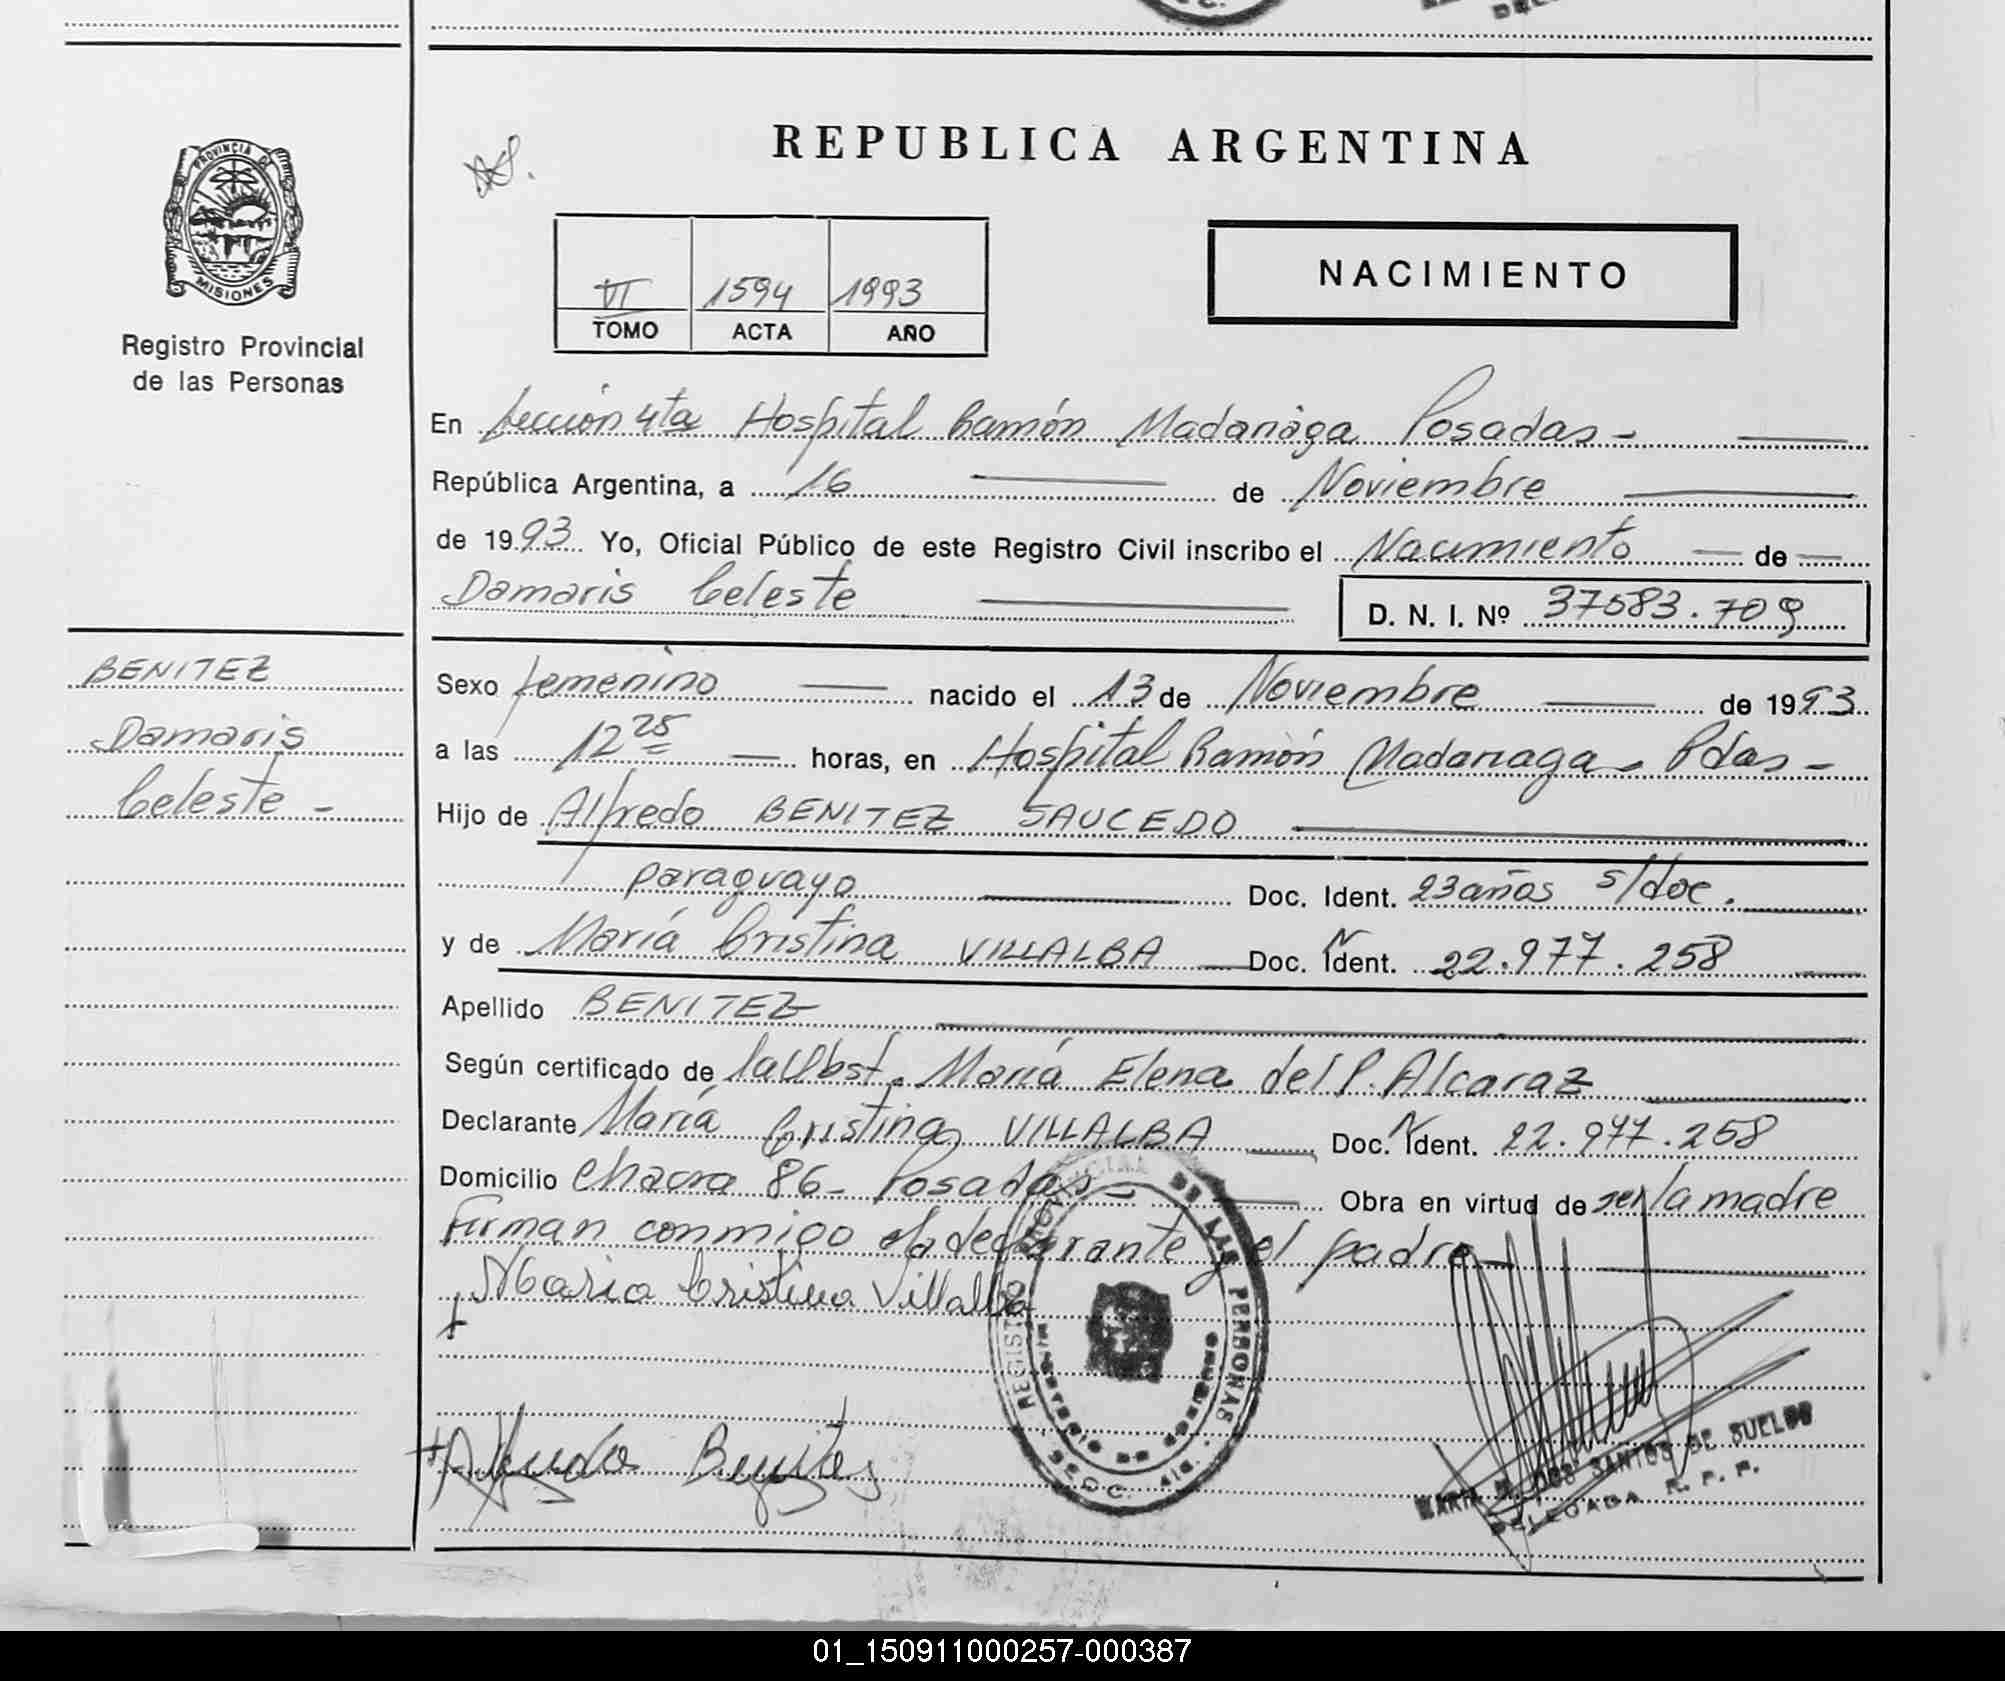 REPUBLICA ARGENTINA
PROVINCIA DE
MISIONES
Registro Provincial
de las Personas
VI 1594 1993
TOMO ACTA AÑO
NACIMIENTO
En Sección 4ta Hospital Ramón Madariaga Posadas -
República Argentina, a 16 de Noviembre
de 1993 Yo, Oficial Público de este Registro Civil inscribo el Nacimiento de
Damaris Celeste D. N. I. Nº 37583.709
BENITEZ
Damaris
Celeste -
Sexo femenino nacido el 13 de Noviembre de 1993
a las 12 25 horas, en Hospital Ramón Madariaga - Pdas -
Hijo de Alfredo BENITEZ SAUCEDO
paraguayo Doc. Ident. 23 años s/doc.
y de María Cristina VILLALBA Doc. Ident. 22.977.258
Apellido BENITEZ
Según certificado de la Obst. María Elena del P. Alcaraz
Declarante María Cristina VILLALBA Doc. Ident. 22.977.258
Domicilio Chacra 86 - Posadas - Obra en virtud de ser la madre
Firman conmigo la declarante y el padre
Maria Cristina Villalba
Alfredo Benitez
DE LAS PERSONAS
SECC. 4ta.
MARIA DOS SANTOS DE SUELDO
DELEGADA R. P. P.
01_150911000257-000387